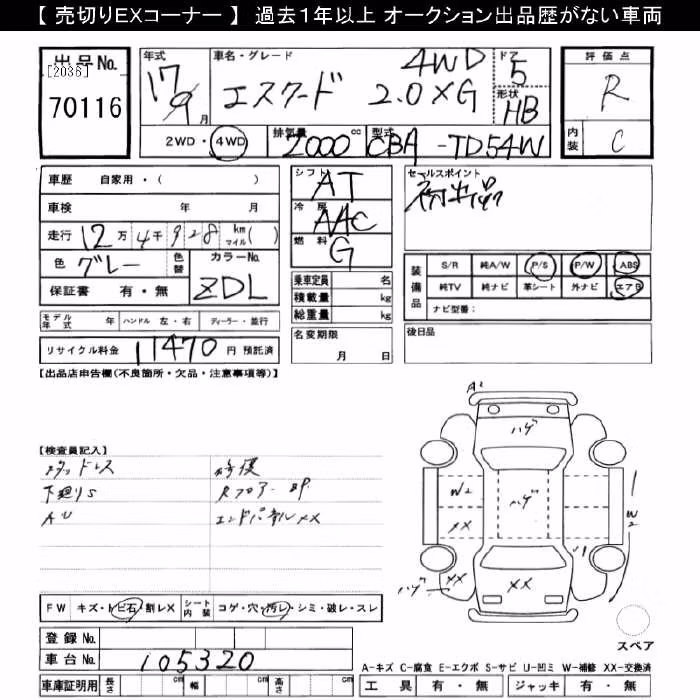 【 売切りEXコーナー 】 過去１年以上 オークション出品歴がない車両
出品No.
[2036]
70116
年式 17 9月
車名・グレード 4WD
エスクード 2.0XG
ドア 5
形状 HB
評価点
R
内装 C
2WD・4WD 排気量 2000 cc 型式 CBA-TD54W
車歴 自家用・( )
車検 年 月
走行 12万4千928 km マイル( )
色 グレー 色替 カラーNo. ZDL
保証書 有・無
シフト AT
冷房 AAC
燃料 G
乗車定員 名
積載量 kg
総重量 kg
セールスポイント
初出品
装備品 S/R 純A/W P/S P/W ABS
純TV 純ナビ 革シート 外ナビ エアB
ナビ型番：
モデル年式 年 ハンドル 左・右 ディーラー・並行
名変期限
月 日
後日品
リサイクル料金 11470 円 預託済
【出品店申告欄(不良箇所・欠品・注意事項等)】
【検査員記入】
スタッドレス 修復
下廻りS Rフロアー SP
AU エンドパネルXX
A2
ハゲ
W2 ハゲ
XX
W2
ハゲ XX XX
FW キズ・トビ石・割レX シート内装 コゲ・穴・汚レ・シミ・破レ・スレ
スペア
登録 No.
車台 No. 105320
A-キズ C-腐食 E-エクボ S-サビ U-凹ミ W-補修 XX-交換済
車庫証明用 長さ cm 幅 cm 高さ cm 工具 有・無 ジャッキ 有・無